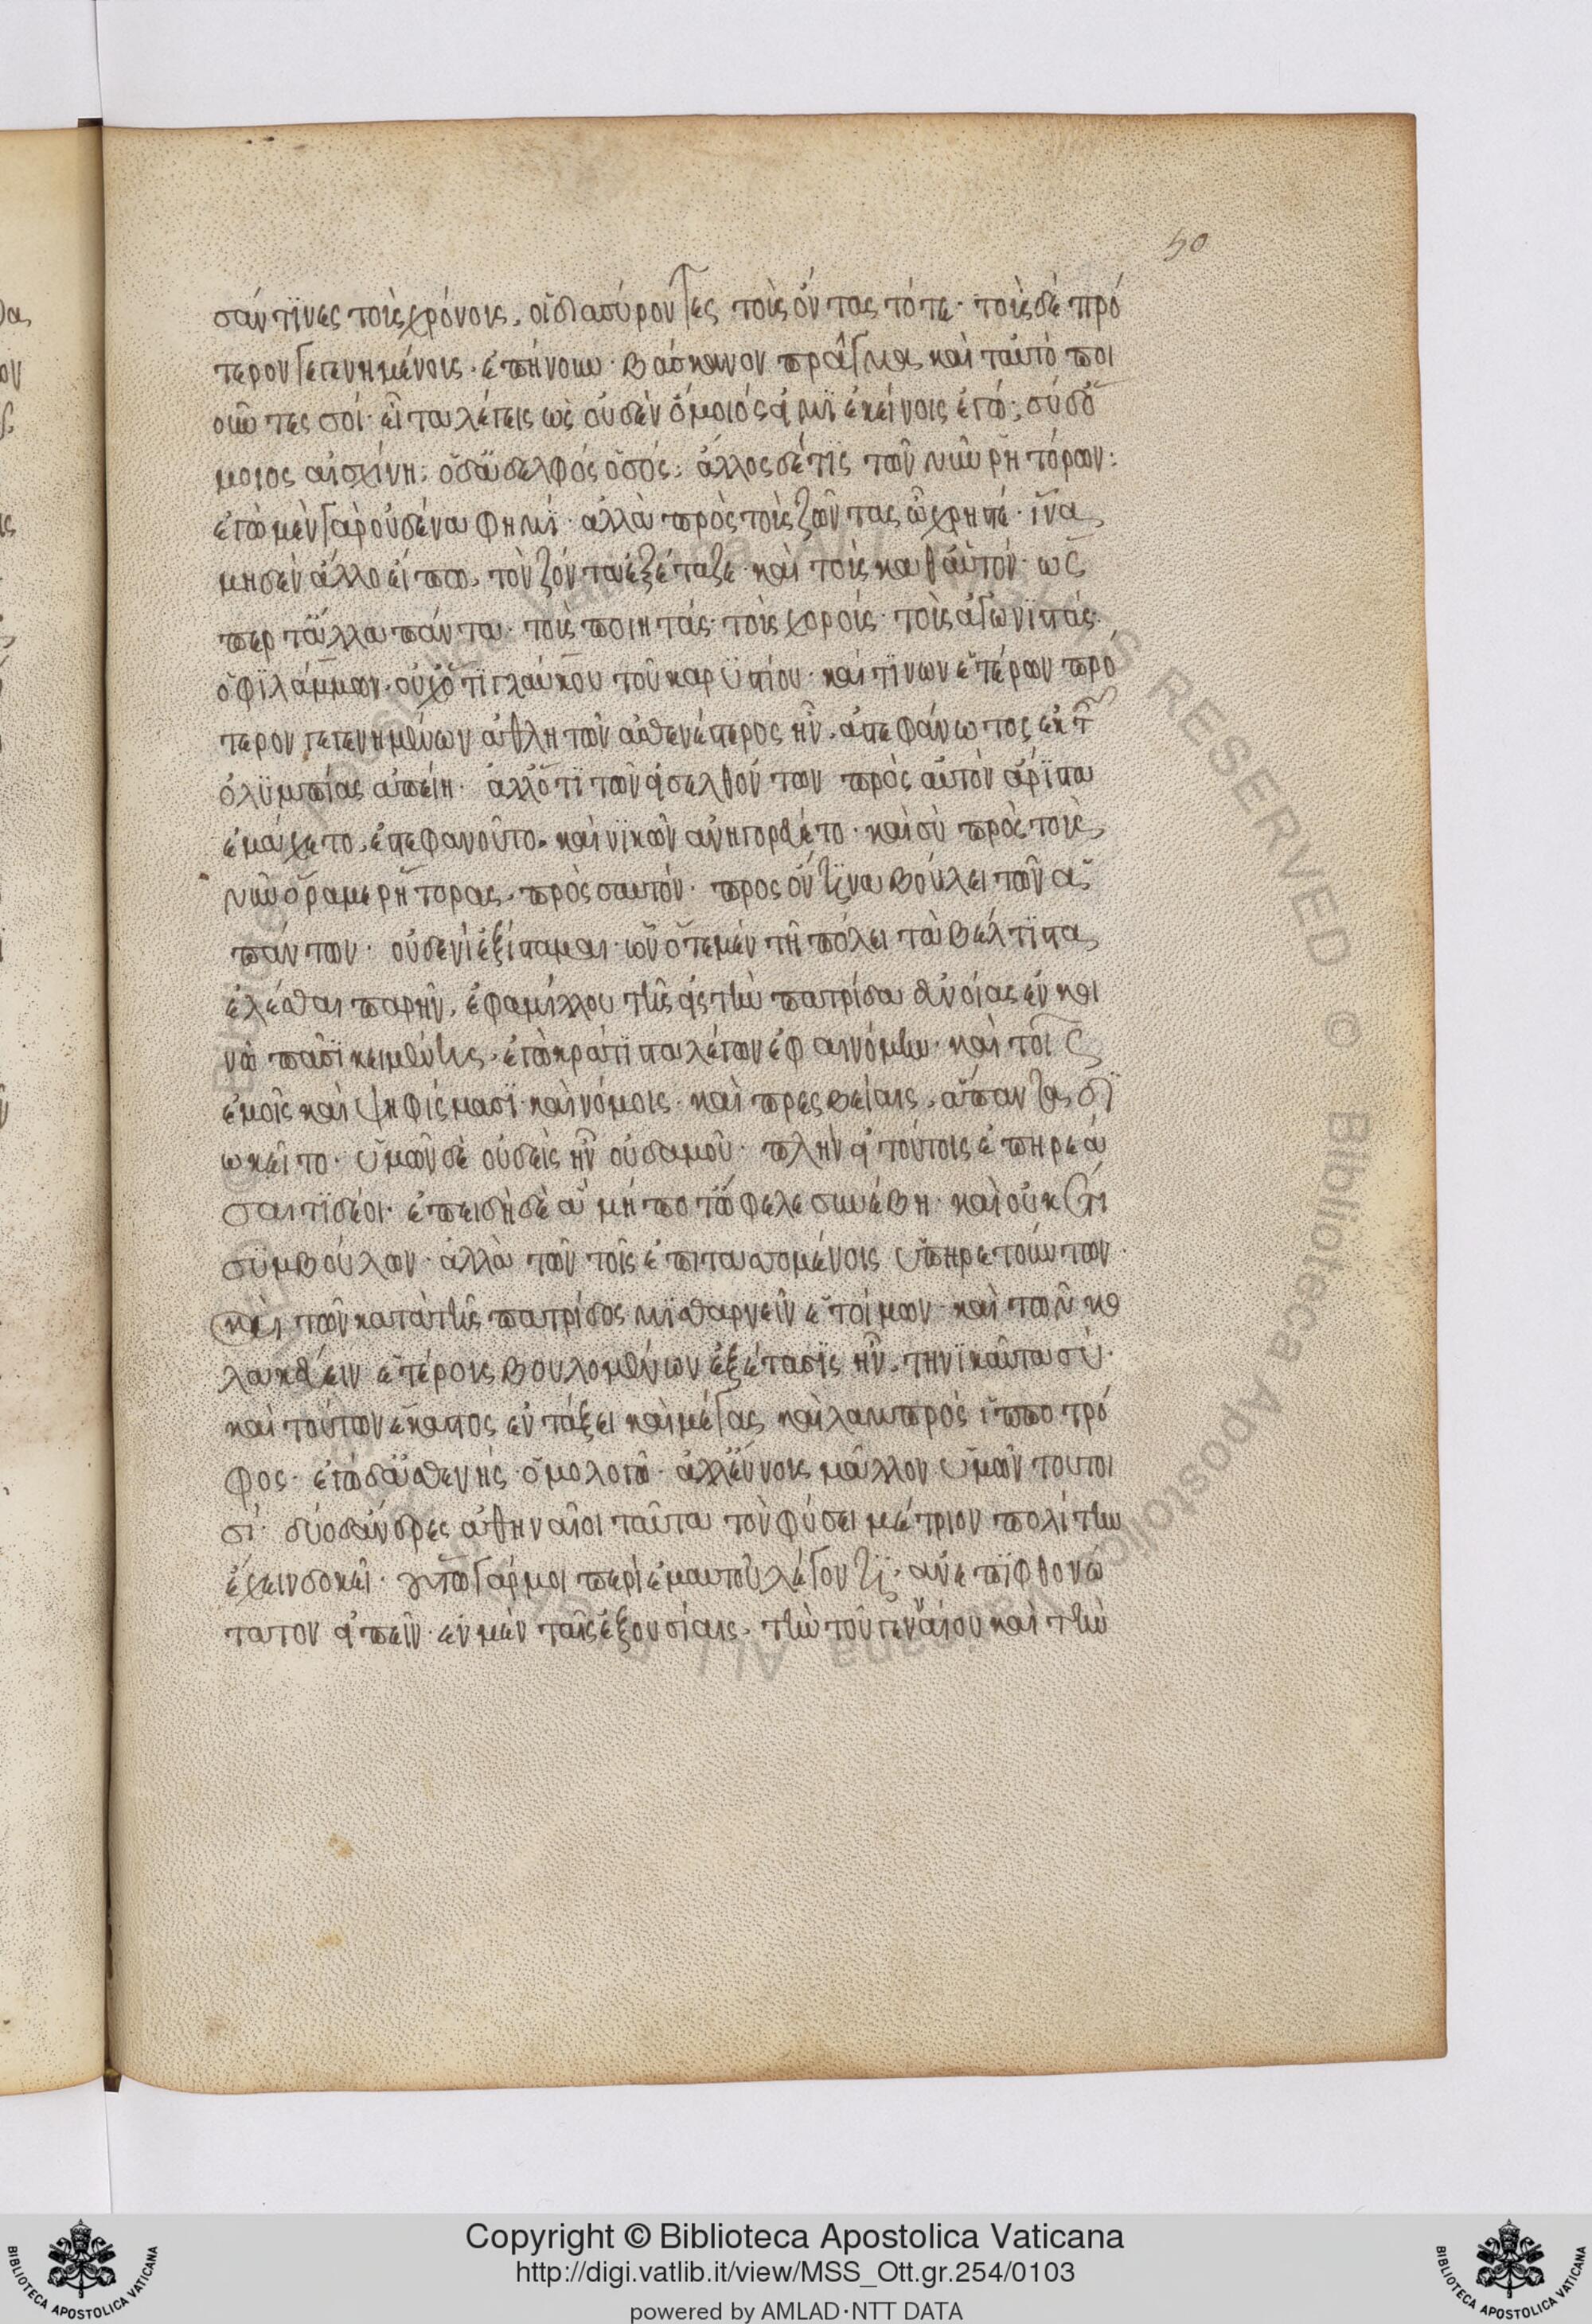 50
σάν τϊνες τοὺς χρόνους, οἳ διασύροντες τοὺς ὄντας τότε· τοὺς δὲ πρό
τερον γεγενημένους· ἐπήνουν· βάσκανον πρᾶγμα καὶ ταὐτὸ ποι
οῦντες σοί· εἶτα λέγεις ὡς οὐδὲν ὅμοιός εἰμϊ ἐκείνοις ἐγώ; σὺ δ' ὅ
μοιος αἰσχίνη; ὁ δ' ἀδελφὸς ὁ σός; ἄλλος δέ τϊς τῶν νῦν ῥητόρων;
ἐγὼ μὲν γὰρ οὐδένα φημϊ· ἀλλὰ πρὸς τοὺς ζῶντας ὦ χρηστέ· ἵνα
μηδὲν ἄλλο εἴπω, τὸν ζῶντα ἐξέταζε· καὶ τοὺς καθ' αὑτόν· ὥς
περ τἄλλα πάντα· τοὺς ποιητάς· τοὺς χορούς· τοὺς ἀγωνϊστάς·
ὁ φϊλάμμων· οὐχ ὅτϊ γλαύκου τοῦ καρϋστίου· καί τϊνων ἑτέρων πρό
τερον γεγενημένων ἀθλητῶν ἀσθενέστερος ἦν, ἀστεφάνωτος ἐκ τῆς
ὀλϋμπίας ἀπῄει· ἀλλ' ὅτϊ τῶν εἰσελθόντων πρὸς αὐτὸν ἄρϊστα
ἐμάχετο, ἐστεφανοῦτο· καὶ νϊκῶν ἀνηγορεύετο· καὶ σὺ πρὸς τοὺς
νῦν ὅρα με ῥήτορας, πρὸς σαυτόν· πρὸς ὅντϊνα βούλει τῶν ἁ
πάντων· οὐδενὶ ἐξίσταμαι· ὧν ὅτε μὲν τῇ πόλει τὰ βέλτϊστα
ἑλέσθαι παρῆν, ἐφαμίλλου τῆς εἰς τὴν πατρίδα εὐνοίας ἐν κοι
νῷ πᾶσϊ κειμένης, ἐγὼ κράτϊστα λέγων ἐφαινόμην· καὶ τοῖς
ἐμοῖς καὶ ψηφίσμασϊ καὶ νόμοις· καὶ πρεσβείαις, ἅπαντα δϊ
ῳκεῖτο· ὑμῶν δὲ οὐδεὶς ἦν οὐδαμοῦ· πλὴν εἰ τούτοις ἐπηρεά
σαι τϊ δέοι· ἐπειδὴ δὲ ἃ μήποτ' ὤφελε συνέβη· καὶ οὐκέτι
συμβούλων· ἀλλὰ τῶν τοῖς ἐπιταττομένοις ὑπηρετούντων·
καὶ τῶν κατὰ τῆς πατρίδος μϊσθαρνεῖν ἑτοίμων· καὶ τῶν κο
λακεύειν ἑτέρους βουλομένων ἐξέτασϊς ἦν, τηνϊκαῦτα σὺ·
καὶ τούτων ἕκαστος ἐν τάξει καὶ μέγας καὶ λαμπρὸς ἱπποτρό
φος· ἐγὼ δ' ἀσθενής· ὁμολογῶ· ἀλλ' εὔνους μᾶλλον ὑμῶν τουτοι
σί· δύο δ' ἄνδρες ἀθηναῖοι ταῦτα τὸν φύσει μέτριον πολίτην
ἔχειν δοκεῖ· οὕτω γάρ μοι περὶ ἐμαυτοῦ λέγοντϊ· ἀνεπϊφθονώ
τατον εἰπεῖν· ἐν μὲν ταῖς ἐξουσίαις, τὴν τοῦ γενναίου καὶ τὴν
Copyright © Biblioteca Apostolica Vaticana
http://digi.vatlib.it/view/MSS_Ott.gr.254/0103
powered by AMLAD·NTT DATA